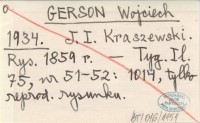 GERSON Wojciech
1934. J. I. Kraszewski.
Rys. 1859 r. — Tyg. Il.
75, nr 51-52: 1014, tylko
reprod. rysunku.